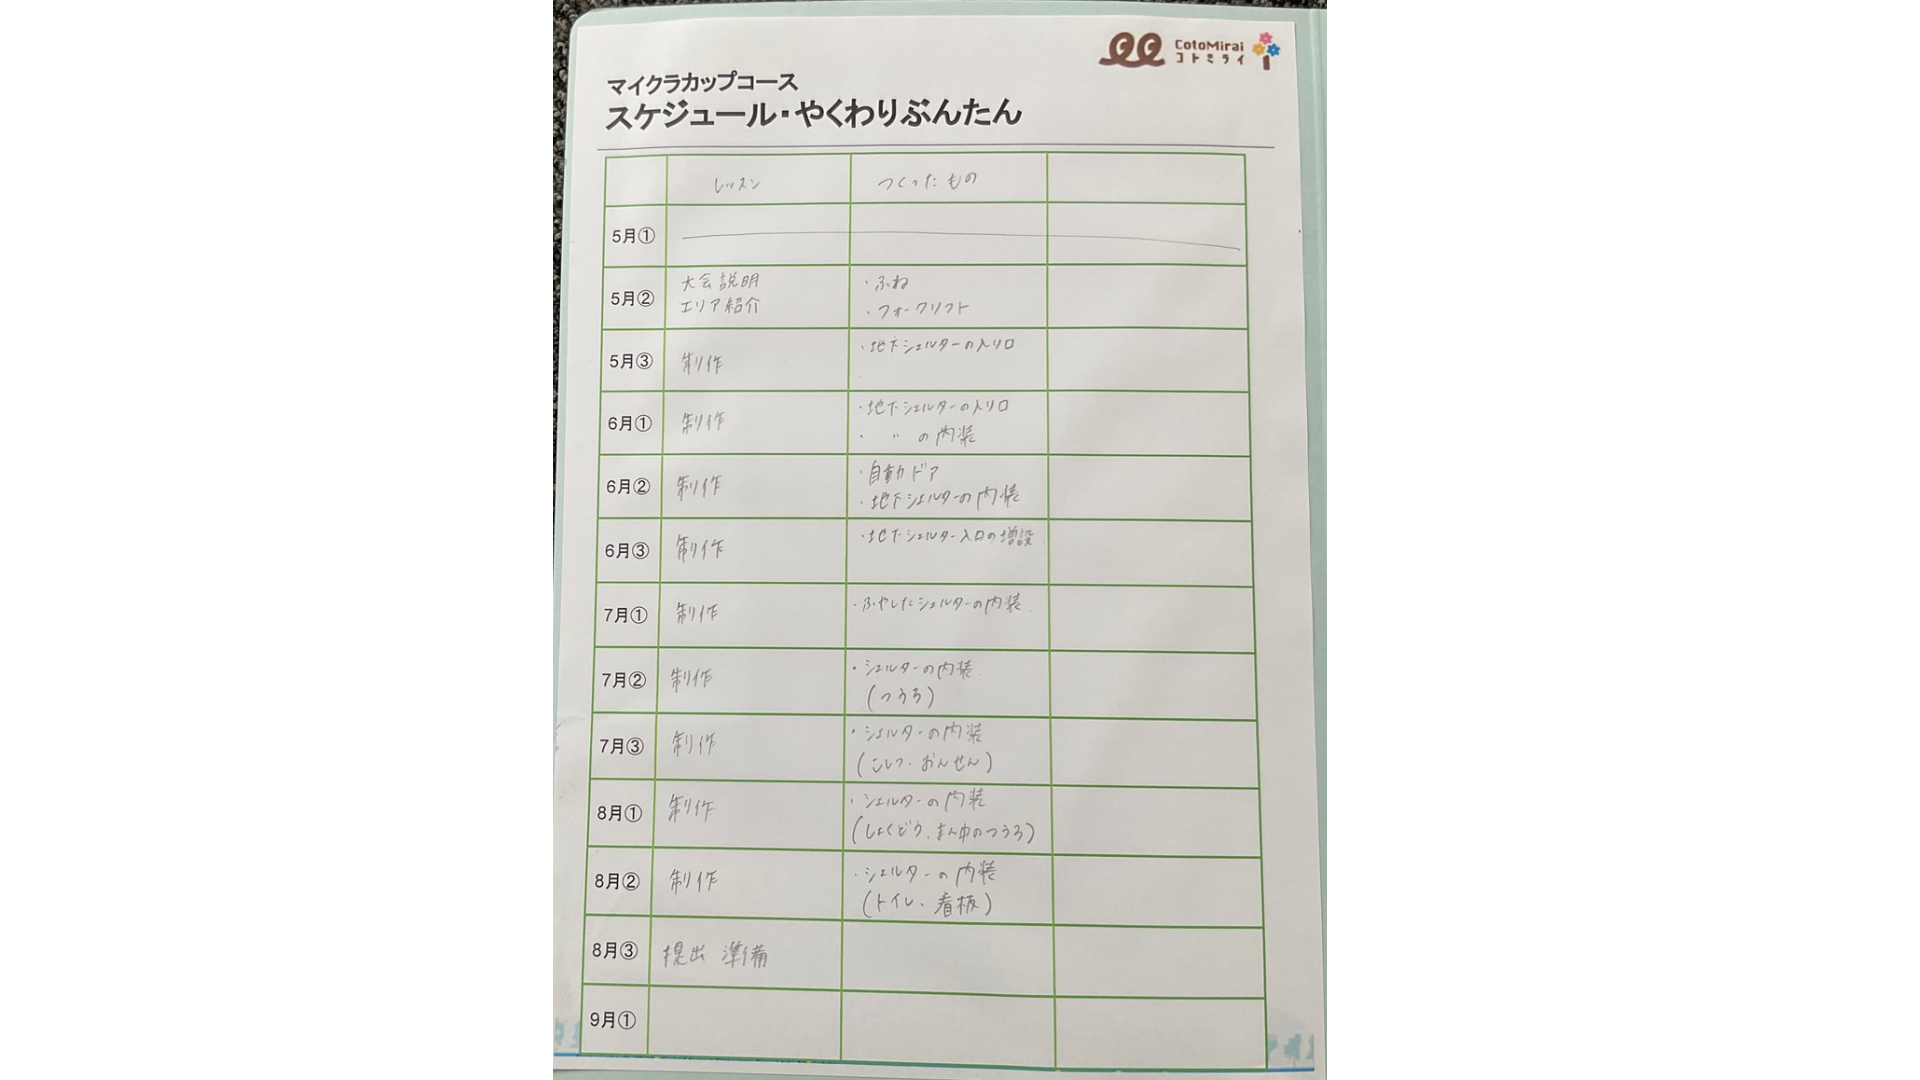 CotoMirai
コトミライ
マイクラカップコース
スケジュール・やくわりぶんたん
レッスン
つくったもの
5月①
5月②
大会説明
エリア紹介
・ふね
・フォークリフト
5月③
制作
・地下シェルターの入り口
6月①
制作
・地下シェルターの入り口
・〃の内装
6月②
制作
・自動ドア
・地下シェルターの内装
6月③
制作
・地下シェルター入口の増設
7月①
制作
・ふやしたシェルターの内装
7月②
制作
・シェルターの内装
(つうろ)
7月③
制作
・シェルターの内装
(こしつ・おんせん)
8月①
制作
・シェルターの内装
(しょくどう、まん中のつうろ)
8月②
制作
・シェルターの内装
(トイレ、看板)
8月③
提出 準備
9月①